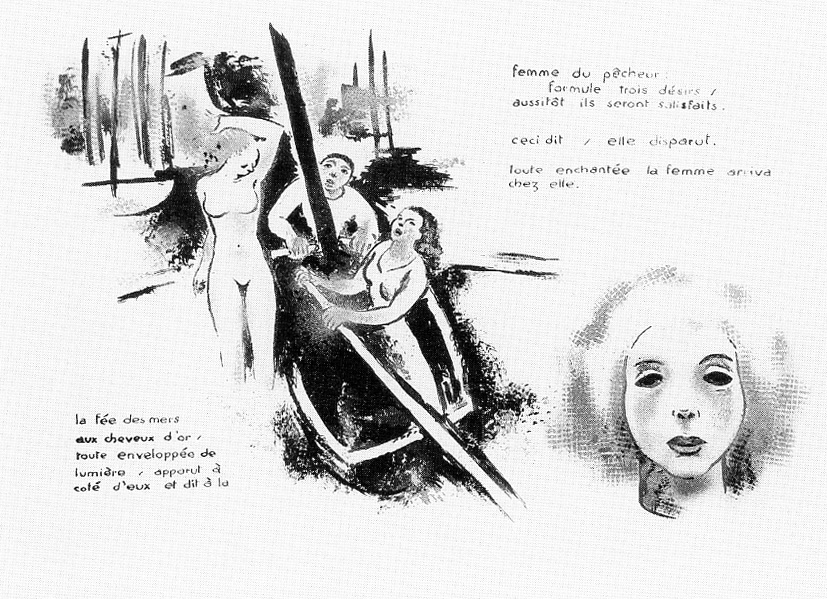 la fée des mers
aux cheveux d'or,
toute enveloppée de
lumière, apparut à
coté d'eux et dit à la
femme du pêcheur:
formule trois désirs,
aussitôt ils seront satisfaits.
ceci dit, elle disparut.
toute enchantée la femme arriva
chez elle.